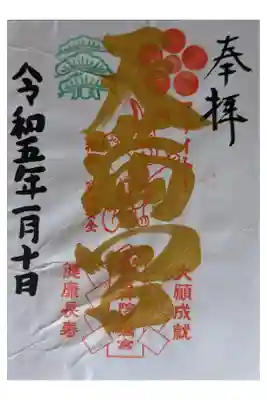 奉拝
天満宮
大願成就
健康長寿
令和五年一月十日